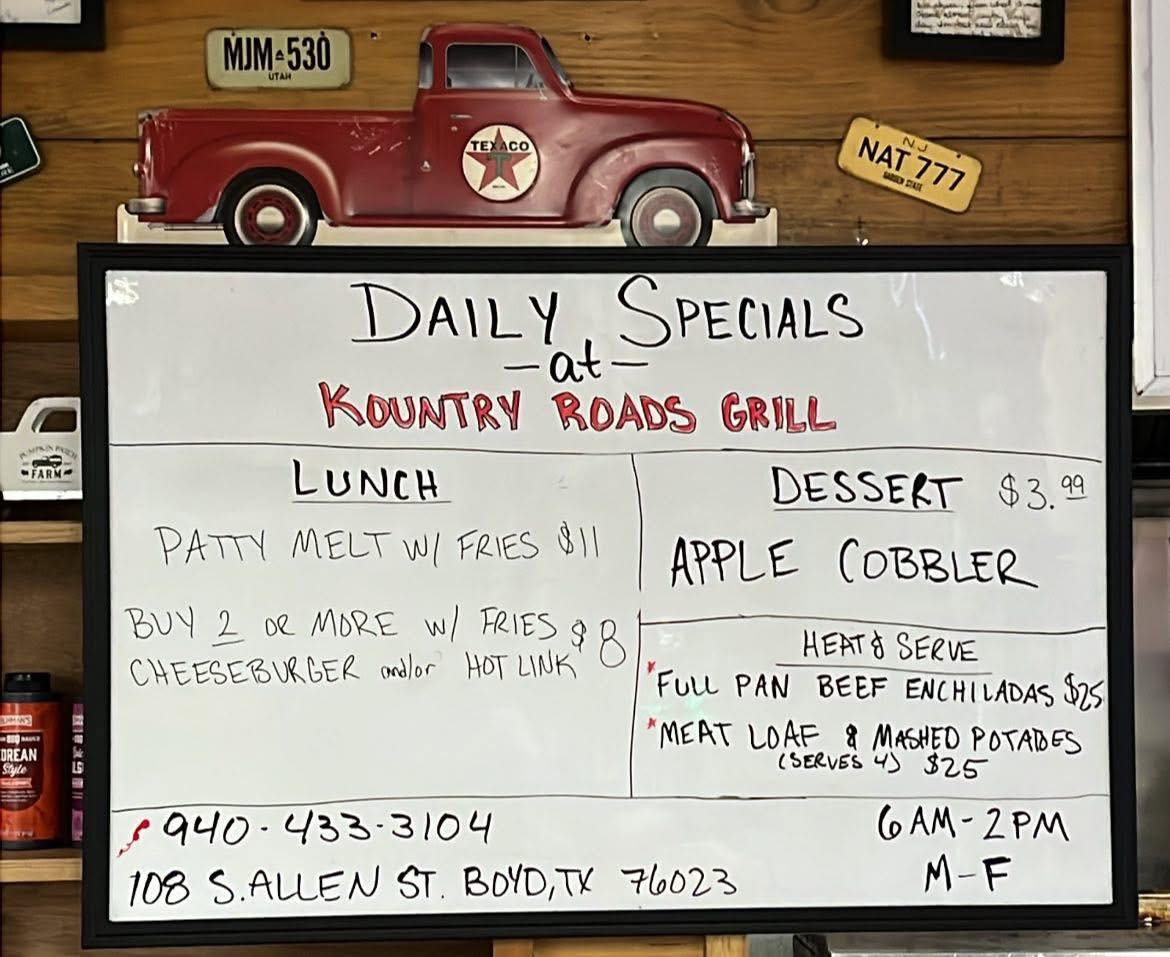 MJM-530
UTAH
TEXACO
T
NJ
NAT 777
GARDEN STATE
DAILY SPECIALS
-at-
KOUNTRY ROADS GRILL
LUNCH
PATTY MELT W/ FRIES $11
BUY 2 OR MORE W/ FRIES $8
CHEESEBURGER and/or HOT LINK
DESSERT $3.99
APPLE COBBLER
HEAT & SERVE
*FULL PAN BEEF ENCHILADAS $25
*MEAT LOAF & MASHED POTATOES
(SERVES 4) $25
940-433-3104
108 S. ALLEN ST. BOYD, TX 76023
6AM-2PM
M-F
PUMPKIN PATCH
FARM
OREAN
Style